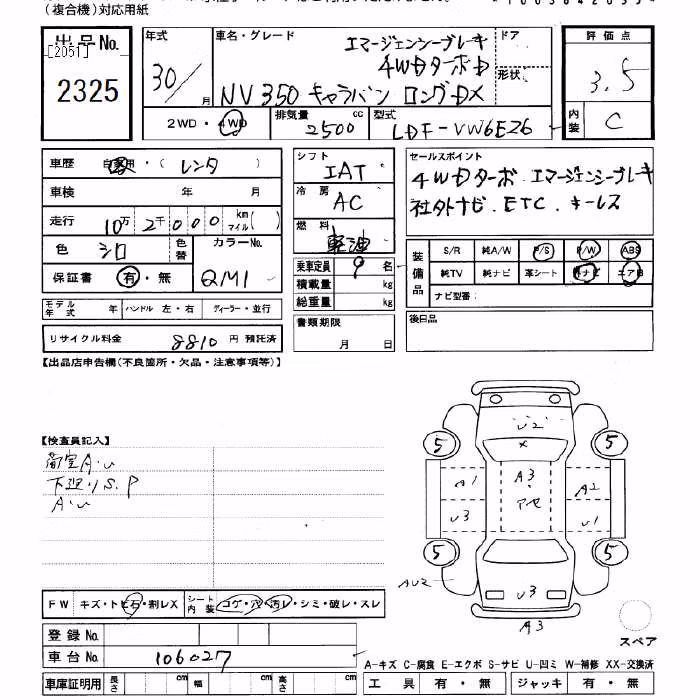 (複合機)対応用紙
出品No.
[2051]
2325
年式
30/
月
車名・グレード
エマージェンシーブレーキ
4WDターボD
NV350 キャラバン ロングDX
ドア
形状
評価点
3.5
内装
C
2WD・4WD
排気量
2500
cc
型式
LDF-VW6E26
車歴
自家用・(レンタ)
車検
年
月
走行
10万2千000
km
マイル
( )
色
シロ
色替
カラーNo.
QM1
保証書
有・無
モデル年式
年
ハンドル 左・右
ディーラー・並行
リサイクル料金
8810
円 預託済
シフト
IAT
冷房
AC
燃料
軽油
乗車定員
9
名
積載量
kg
総重量
kg
書類期限
月 日
セールスポイント
4WDターボ.エマージェンシーブレーキ
社外ナビ.ETC.キーレス
装備品
S/R
純A/W
P/S
P/W
ABS
純TV
純ナビ
革シート
ナビ型番:
後日品
【出品店申告欄(不良箇所・欠品・注意事項等)】
【検査員記入】
荷室A・U
下廻りS.P
A・U
U2
×
5
5
A1
A3
A2
U3
アセ
U1
5
5
AU2
U3
A3
スペア
FW
キズ・トビ石・割レX
シート内装
コゲ・穴・汚レ・シミ・破レ・スレ
登録No.
車台No.
106027
車庫証明用
長さ
cm
幅
cm
高さ
cm
A-キズ C-腐食 E-エクボ S-サビ U-凹ミ W-補修 XX-交換済
工具
有・無
ジャッキ
有・無